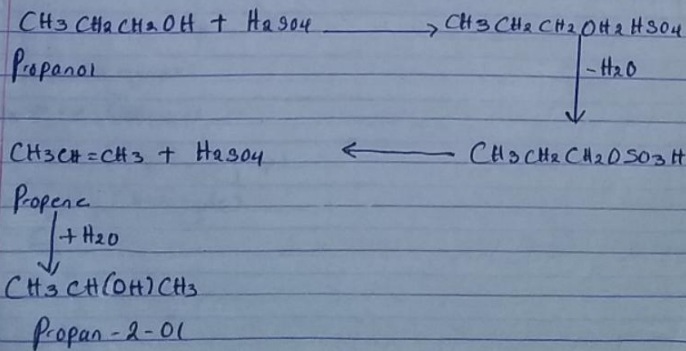 CH3CH2CH2OH + H2SO4 → CH3CH2CH2OH2HSO4
Propanol
-H2O
CH3CH=CH3 + H2SO4 ← CH3CH2CH2OSO3H
Propene
+ H2O
CH3CH(OH)CH3
Propan-2-Ol